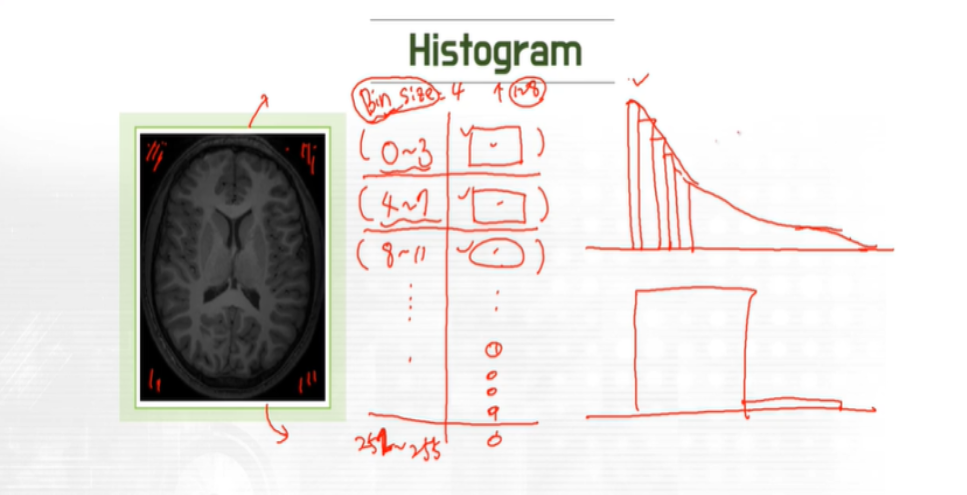 Histogram
Bin size: 4 ↑ 128
( 0~3 )
( 4~7 )
( 8~11 )
0
0
0
0
252~255 0